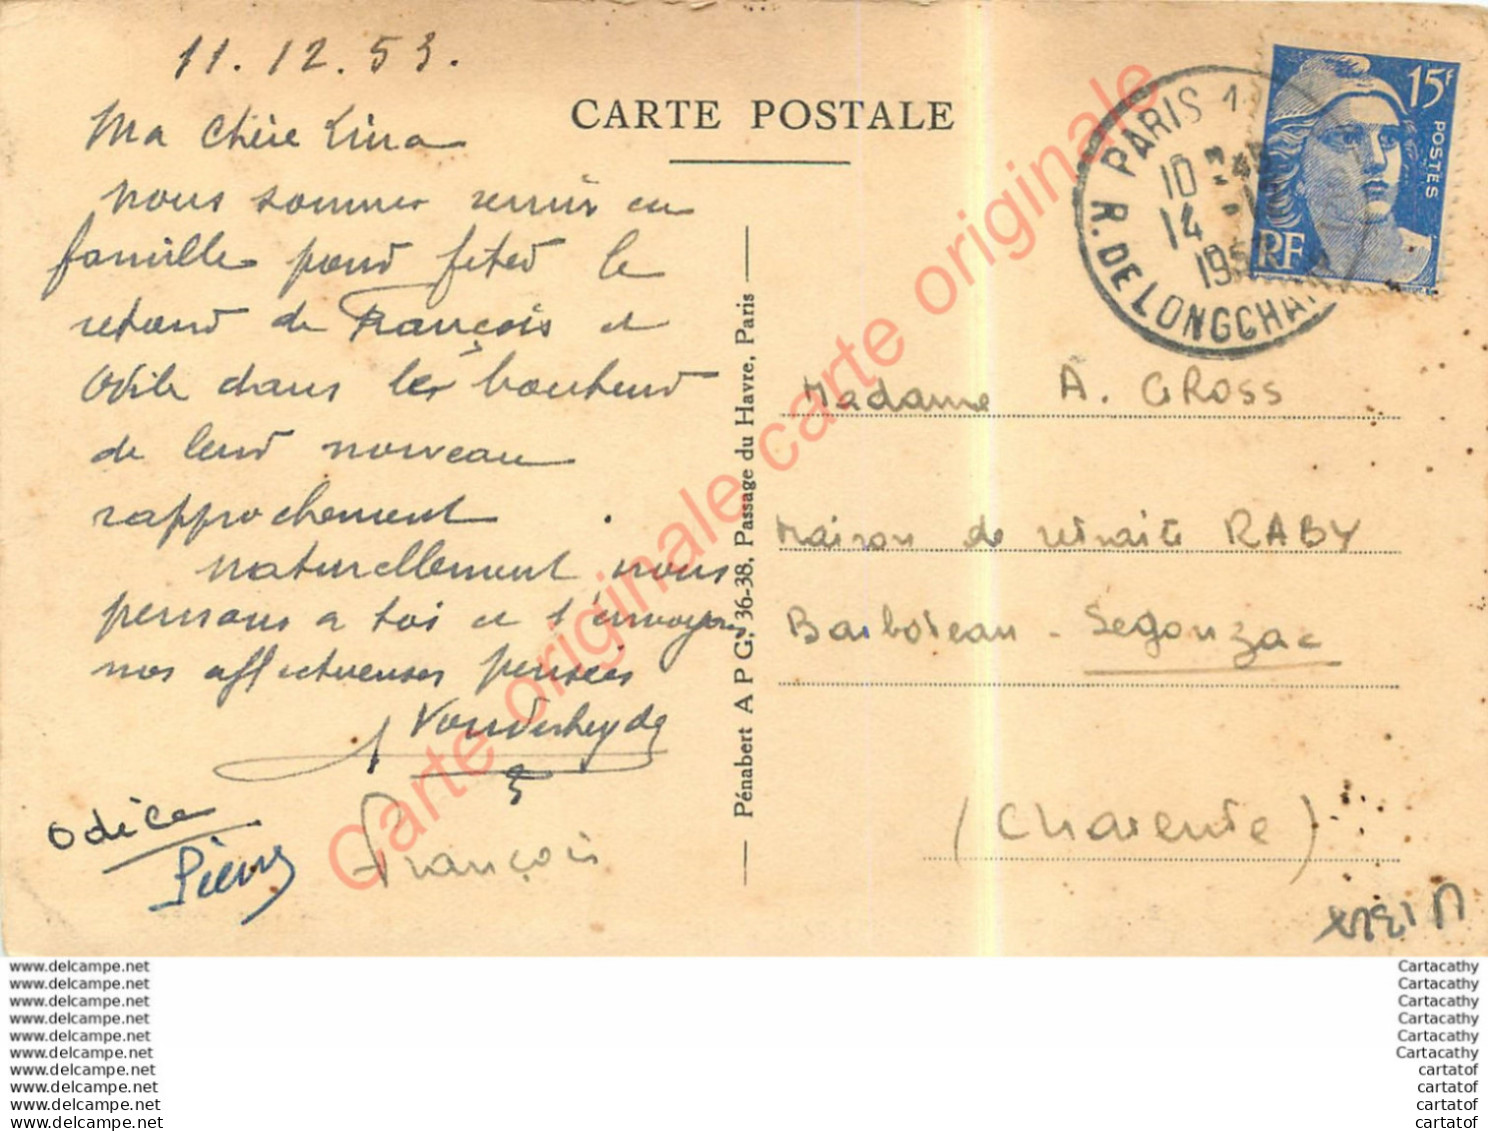 11.12.53.
Ma chère Lina
nous sommes réunis en
famille pour feter le
retour de François et
Odile dans le bonheur
de leur nouveau
rapprochement
naturellement nous
pensons a toi et t'envoyons
nos affectueuses pensées
Vanderheyde
Odile
Pierre
François
CARTE POSTALE
Pénabert A P G, 36-38, Passage du Havre, Paris
PARIS 1
R. DE LONGCHAM
10
14
195
15F
POSTES
RF
Madame A. GROSS
Maison de retraite RABY
Barboteau - Segonzac
(Charente)
Carte originale carte originale
www.delcampe.net
www.delcampe.net
www.delcampe.net
www.delcampe.net
www.delcampe.net
www.delcampe.net
www.delcampe.net
www.delcampe.net
www.delcampe.net
www.delcampe.net
Cartacathy
Cartacathy
Cartacathy
Cartacathy
Cartacathy
Cartacathy
cartatof
cartatof
cartatof
cartatof